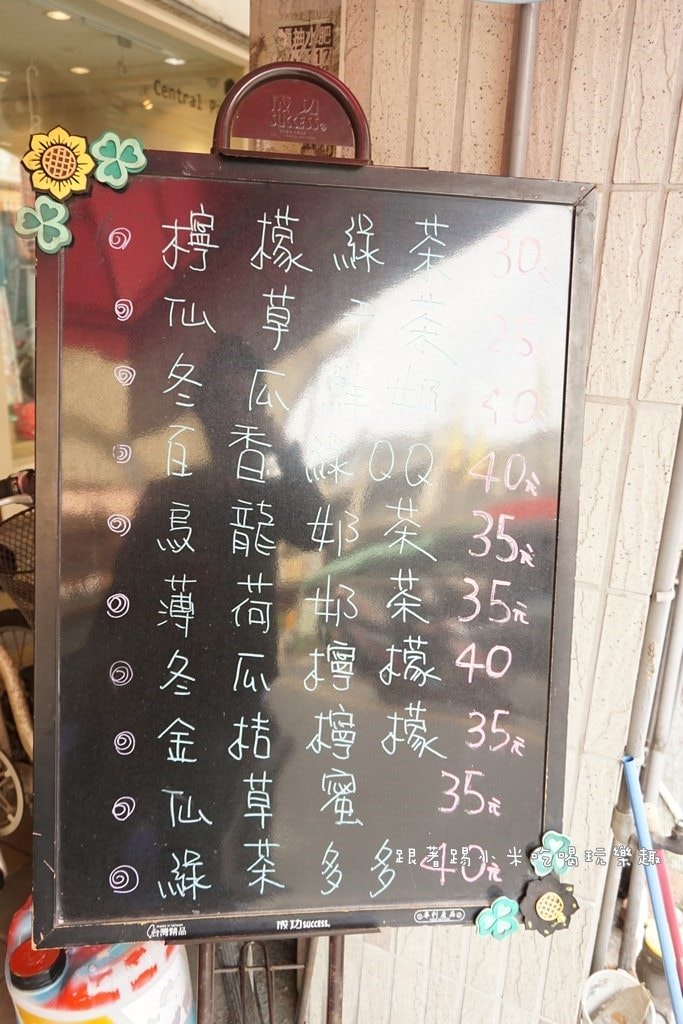 抽水肥
17
Central P
成功
SUCCESS
檸檬綠茶 30元
仙草干茶 25
冬瓜鮮奶 40
百香綠QQ 40元
烏龍奶茶 35元
薄荷奶茶 35元
冬瓜檸檬 40
金桔檸檬 35元
仙草蜜 35元
綠茶多多 40元
跟著踢小米吃喝玩樂趣
台灣精品
成功 SUCCESS
專利產品